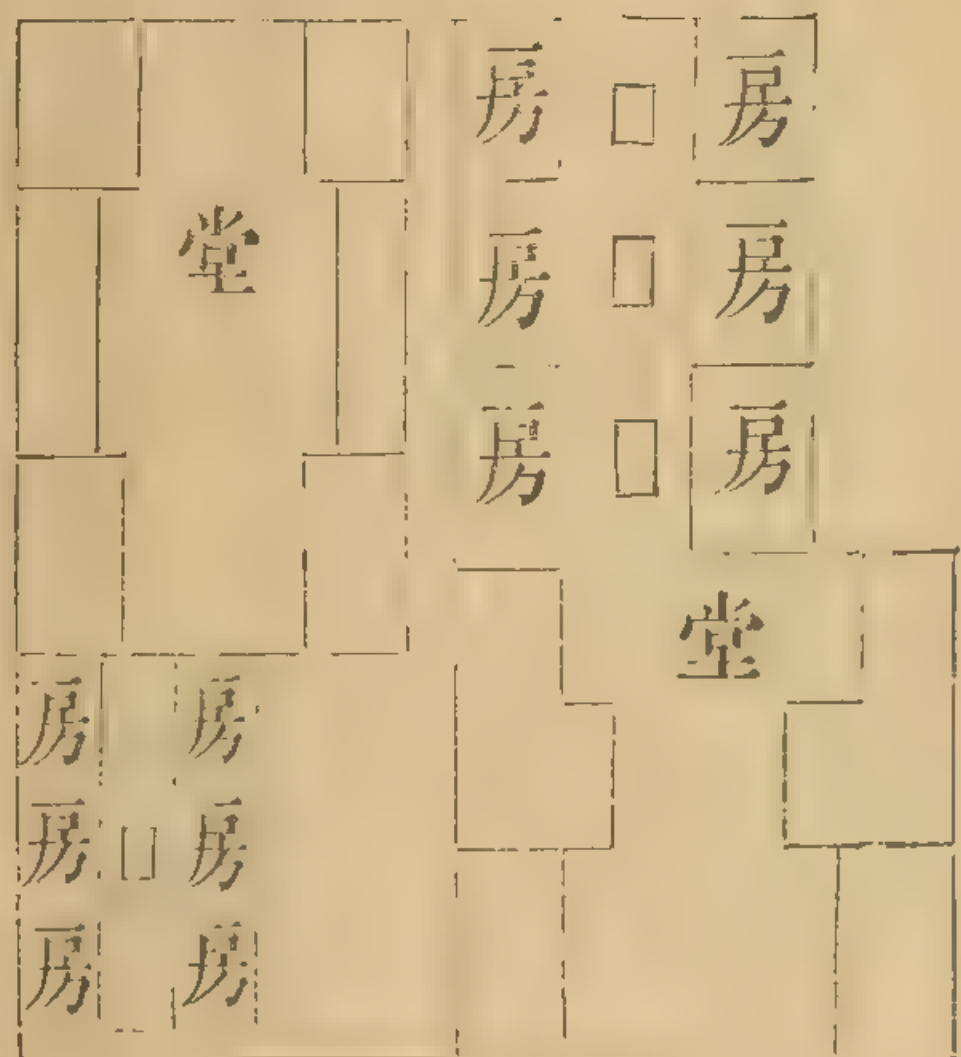 房
房
房
堂
房
房
房
堂
房
房
房
房
房
房